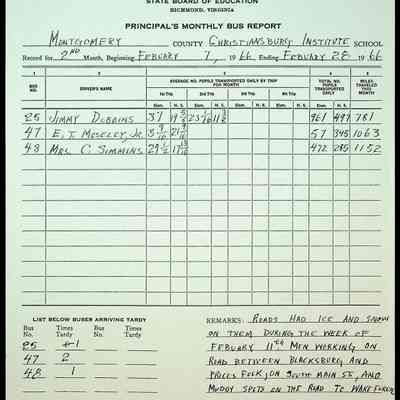 STATE BOARD OF EDUCATION
RICHMOND, VIRGINIA
PRINCIPAL'S MONTHLY BUS REPORT
MONTGOMERY COUNTY CHRISTIANSBURG INSTITUTE SCHOOL
Record for 2ND Month, Beginning FEBUARY 1, 1966 Ending FEBUARY 28 1966
1 2 3 4 5
BUS NO. DRIVER'S NAME AVERAGE NO. PUPILS TRANSPORTED DAILY BY TRIP FOR MONTH TOTAL NO. PUPILS TRANSPORTED DAILY MILES TRAVELED THIS MONTH
1st Trip 2nd Trip 3rd Trip 4th Trip
Elem. H. S. Elem. H. S. Elem. H. S. Elem. H. S. Elem. H. S.
25 JIMMY DOBBINS 37 961 781
47 E. T. MOSELEY, JR. 57 345 1063
48 MRS. C. SIMMINS 472 285 1152
LIST BELOW BUSES ARRIVING TARDY
Bus No. Times Tardy Bus No. Times Tardy
25 1
47 2
48 1
REMARKS: ROADS HAD ICE AND SNOW
ON THEM DURING THE WEEK OF
FEBUARY 11TH MEN WORKING ON
ROAD BETWEEN BLACKSBURG AND
PRICES FORK, ON SOUTH MAIN ST, AND
MUDDY SPOTS ON THE ROAD TO WAKE FOREST